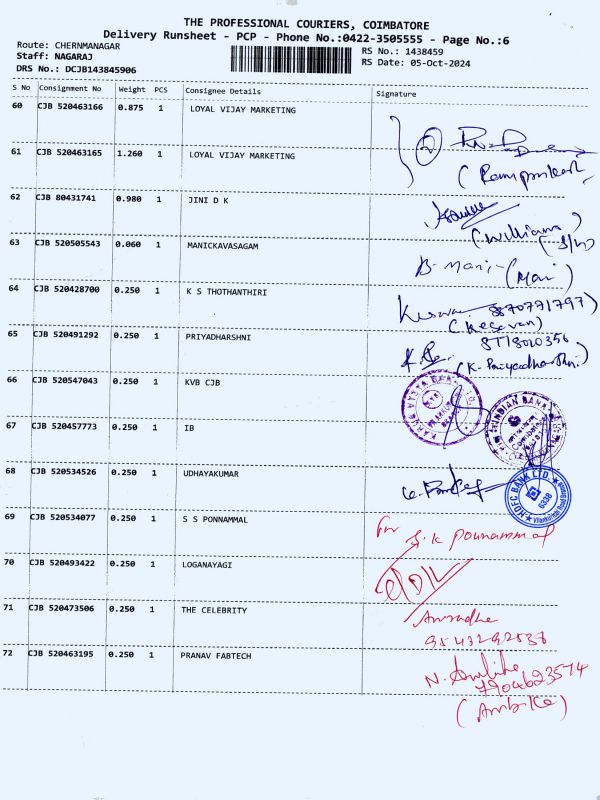 THE PROFESSIONAL COURIERS, COIMBATORE
Delivery Runsheet - PCP - Phone No.:0422-3505555 - Page No.:6
Route: CHERNMANAGAR
RS No.: 1438459
Staff: NAGARAJ
RS Date: 05-Oct-2024
DRS No.: DCJB143845906
S No Consignment No Weight PCS Consignee Details Signature
60 CJB 520463166 0.875 1 LOYAL VIJAY MARKETING
61 CJB 520463165 1.260 1 LOYAL VIJAY MARKETING
2
(Ramprakash
62 CJB 80431741 0.980 1 JINI D K
(William)
(S/W)
63 CJB 520505543 0.060 1 MANICKAVASAGAM
B. Mani - (Mani)
64 CJB 520428700 0.250 1 K S THOTHANTHIRI
8870771797)
(Kesavan)
65 CJB 520491292 0.250 1 PRIYADHARSHNI
8778020356
(K. Priyadharshni)
66 CJB 520547043 0.250 1 KVB CJB
KARUR VYSYA BANK LTD.
67 CJB 520457773 0.250 1 IB
INDIAN BANK
68 CJB 520534526 0.250 1 UDHAYAKUMAR
HDFC BANK LTD.
6388
69 CJB 520534077 0.250 1 S S PONNAMMAL
for S.K Ponnammal
70 CJB 520493422 0.250 1 LOGANAYAGI
ODL
71 CJB 520473506 0.250 1 THE CELEBRITY
Anuradha
9543292538
72 CJB 520463195 0.250 1 PRANAV FABTECH
N. Ambika
7904623574
(Ambika)